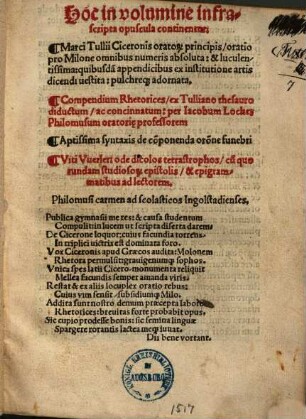 Hoc in volumine infra-
scripta opuscula continentur.
¶Marci Tullii Ciceronis oratorꝝ principis/oratio
pro Milone omnibus numeris absoluta: & luculen-
tissimisquibusdā appendicibus ex institutione artis
dicendi uestita: pulchreqꝫ adornata.
¶Compendium Rhetorices/ex Tulliano thesauro
diductum/ac concinnatum: per Iacobum Locher
Philomusum oratorię professorem
¶Aptissima syntaxis de cōponenda orōne funebri
¶Viti Vuerleri ode dicolos tetrastrophos/cū quo
rundam studiosoꝝ epistolis/& epigram-
matibus ad lectorem.
Philomusi carmen ad scolasticos Ingolstadienses,
Publica gymnasii me res: & causa studentum
Compulit in lucem ut scripta diserta darem
De Cicerone loquor: cuius facundia torrens
In triplici uictrix est dominata foro.
Vox Ciceronis apud Graecos auditur: Molonem
Rhetora permulsit: grauigenumqꝫ sophos.
Vnica spes latii Cicero: monumenta reliquit
Mellea facundis semper amanda viris.
Restat & ex aliis locuplex oratio rebus:
Cuius vim sensit/subsidiumqꝫ Milo.
Addita sunt nostro demum præcepta labore
Rhetorices: breuitas forte probabit opus.
Sic cupio prodesse bonis: sic semina linguæ
Spargere torantis lactea meqꝫ iuuat.
Dii bene vortant.
IN
AUGSBURG
1517